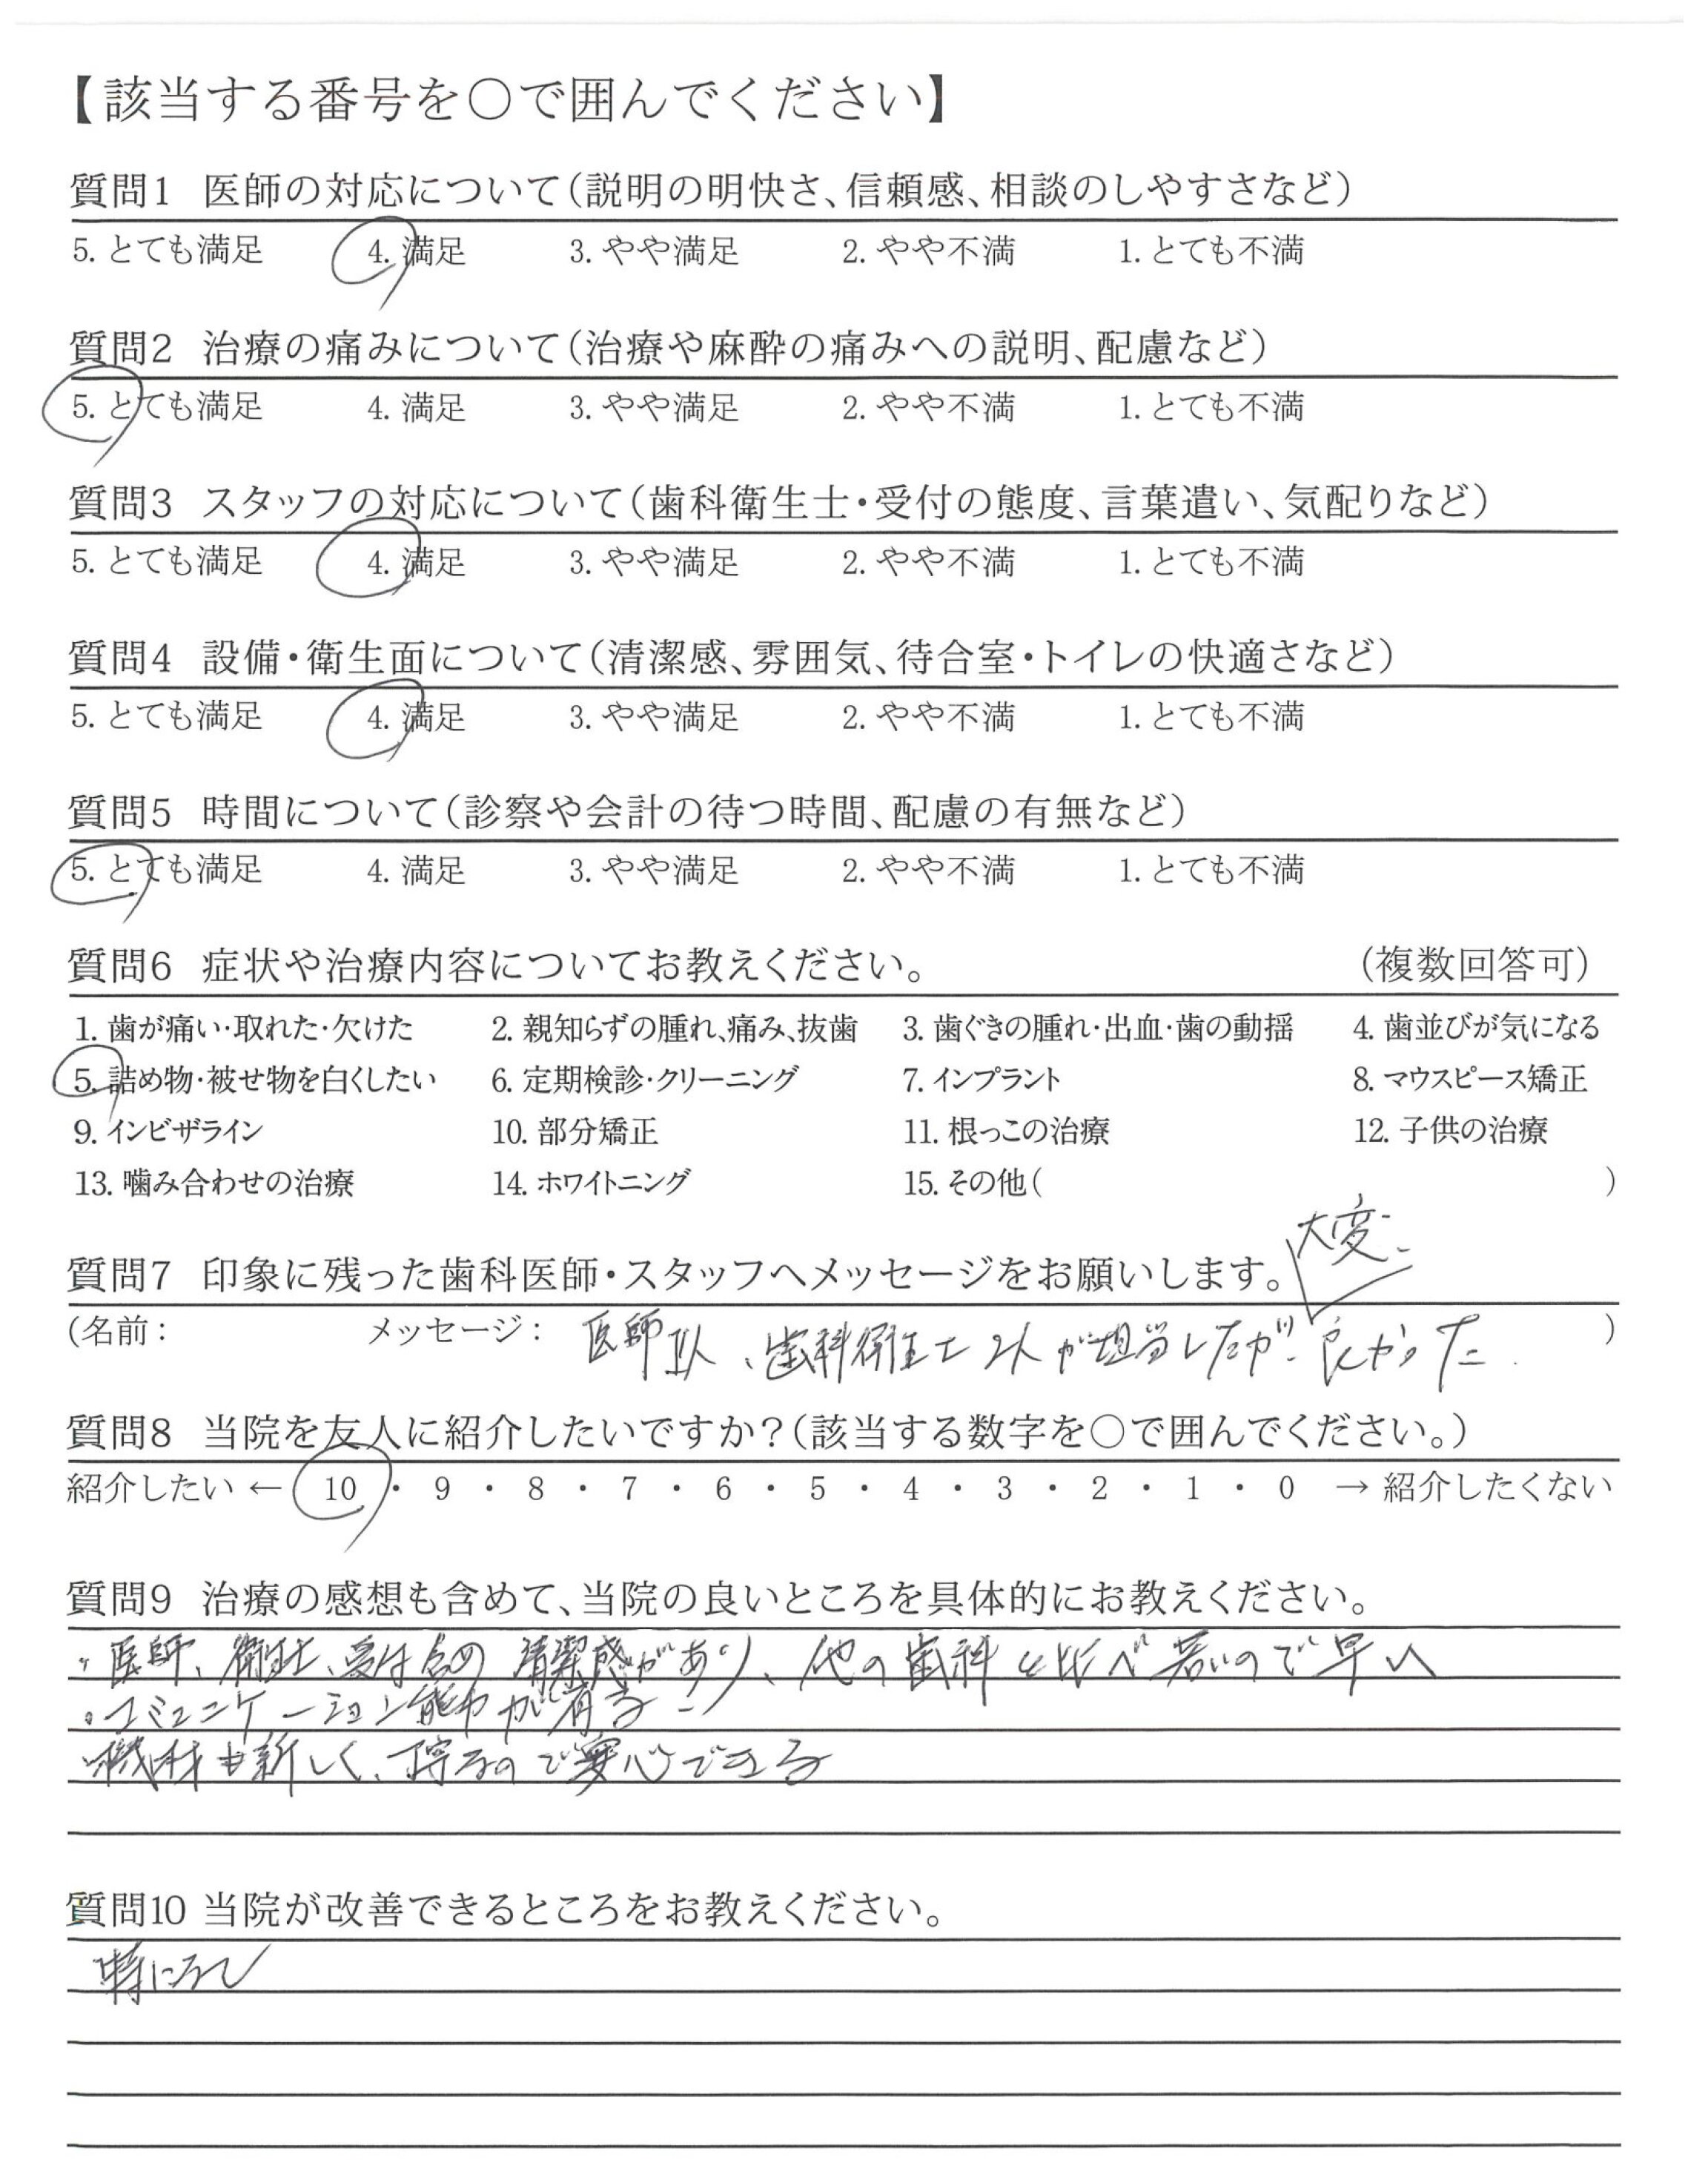 【該当する番号を〇で囲んでください】
質問1 医師の対応について(説明の明快さ、信頼感、相談のしやすさなど)
5. とても満足 4. 満足 3. やや満足 2. やや不満 1. とても不満
質問2 治療の痛みについて(治療や麻酔の痛みへの説明、配慮など)
5. とても満足 4. 満足 3. やや満足 2. やや不満 1. とても不満
質問3 スタッフの対応について(歯科衛生士・受付の態度、言葉遣い、気配りなど)
5. とても満足 4. 満足 3. やや満足 2. やや不満 1. とても不満
質問4 設備・衛生面について(清潔感、雰囲気、待合室・トイレの快適さなど)
5. とても満足 4. 満足 3. やや満足 2. やや不満 1. とても不満
質問5 時間について(診察や会計の待つ時間、配慮の有無など)
5. とても満足 4. 満足 3. やや満足 2. やや不満 1. とても不満
質問6 症状や治療内容についてお教えください。 (複数回答可)
1. 歯が痛い・取れた・欠けた 2. 親知らずの腫れ、痛み、抜歯 3. 歯ぐきの腫れ・出血・歯の動揺 4. 歯並びが気になる
5. 詰め物・被せ物を白くしたい 6. 定期検診・クリーニング 7. インプラント 8. マウスピース矯正
9. インビザライン 10. 部分矯正 11. 根っこの治療 12. 子供の治療
13. 噛み合わせの治療 14. ホワイトニング 15. その他( )
質問7 印象に残った歯科医師・スタッフへメッセージをお願いします。
大変
(名前: メッセージ: 医師 人、歯科衛生士 2人が担当したが、良かった。 )
質問8 当院を友人に紹介したいですか?(該当する数字を〇で囲んでください。)
紹介したい ← 10 ・ 9 ・ 8 ・ 7 ・ 6 ・ 5 ・ 4 ・ 3 ・ 2 ・ 1 ・ 0 → 紹介したくない
質問9 治療の感想も含めて、当院の良いところを具体的にお教えください。
・医師、衛生士、受付含め 清潔感があり、他の歯科と比べ若いので早い
・コミュニケーション能力が有る
・機材も新しく、丁寧なので安心できる
質問10 当院が改善できるところをお教えください。
特になし